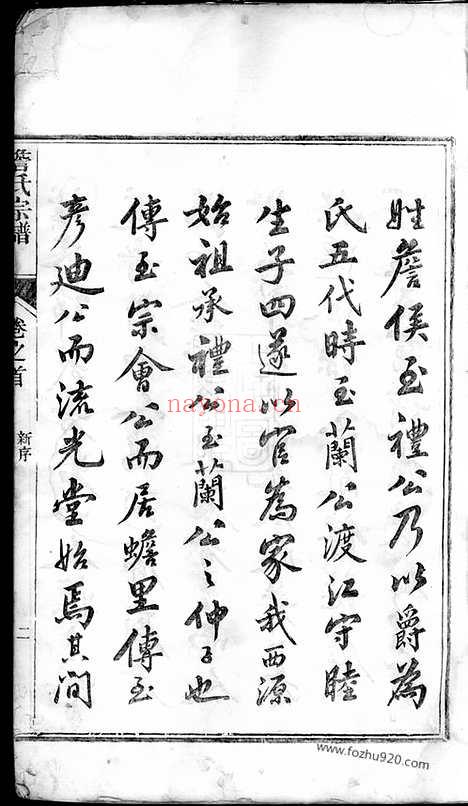 姓詹侯至禮公乃以爵為
氏五代時至蘭公渡江守睦
生子四遂以官為家我西源
始祖承禮公至蘭公之仲子也
傳至宗會公而居蟾里傳至
彥迪公而流光堂始焉其间
詹氏宗譜
卷之首
新序
二
nayona.cn
www.fozhu920.com